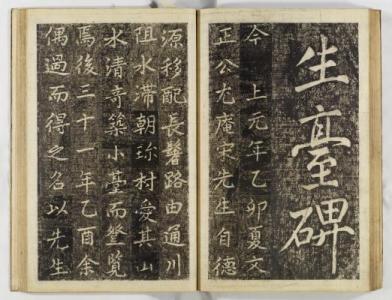 生臺碑
今 上元年乙卯夏文
正公尤庵宋先生自德
源移配長鬐路由通川
阻水滯朝珎村受其山
水清奇築小臺而登覽
焉後三十一年乙酉余
偶過而得之名以先生